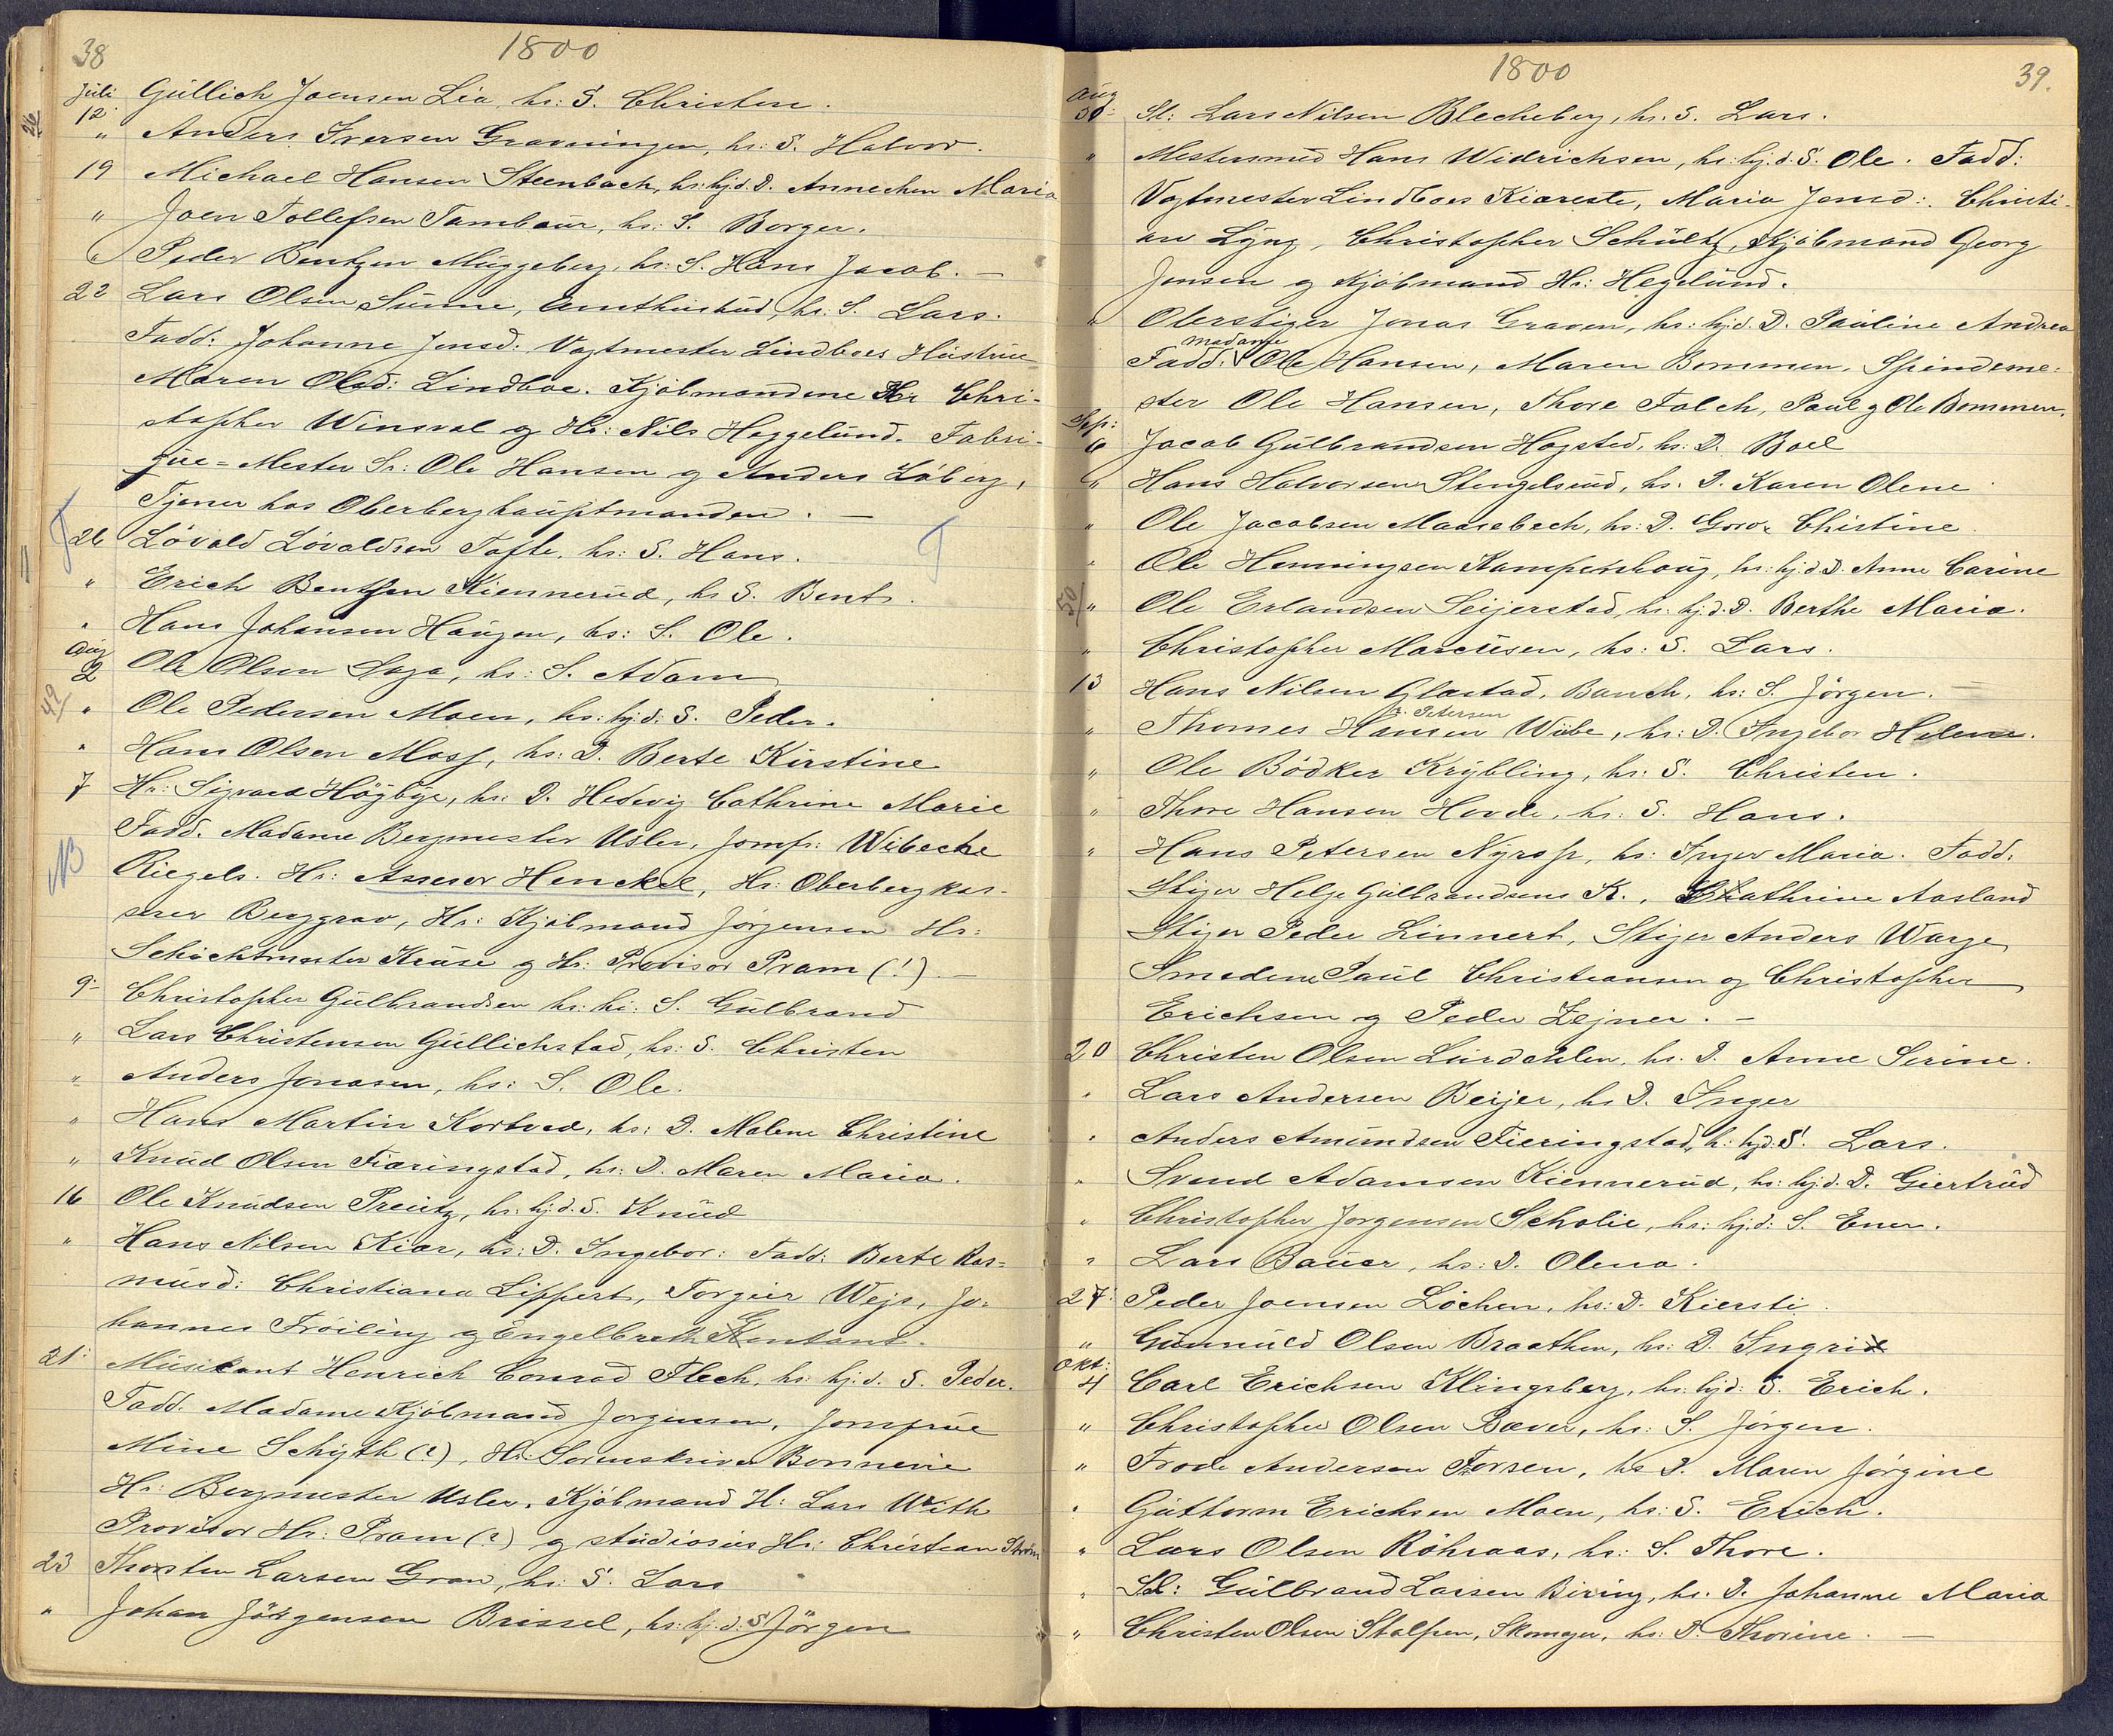 38
1800
Juli
12 Gullich Joensen Lia, hs: S. Christen.
" Anders Iversen Gravningen, hs: S. Halvor.
19 Michael Hansen Steenbach, hs: hj.d. D. Annechen Maria
" Joen Tollefsen Tambour, hs: S. Borger.
" Peder Bentzen Muggeberg, hs: S. Hans Jacob. —
22 Lars Olsen Sunne, Amthusbud, hs: S. Lars.
Fadd: Johanne Jensd: Vagtmester Lindboes Hustrue
Maren Olsd: Lindboe. Kjöbmændene Hr Chri-
stopher Winsval og Hr: Nils Heggelund. Fabri-
que = Mester Sr: Ole Hansen og Anders Löberg,
Tjener hos Oberberghauptmanden. —
26 Lövald Lövaldsen Tofte, hs: S. Hans.
" Erich Bentsen Kiennerud, hs S. Bent.
" Hans Johansen Haugen, hs: S. Ole.
Aug
2 Ole Olsen Saga, hs: S. Adam
" Ole Pedersen Moen, hs: hj.d: S. Peder.
" Hans Olsen Moss, hs: D. Berte Kirstine
7 Hr: Sigvard Höybye, hs: D. Hedevig Cathrine Marie
Fadd. Madame Bergmester Usler, Jomfr: Wibeche
NB Riegels. Hr: Assesor Henckel, Hr: Oberbergkas-
serer Berggrav, Hr: Kjöbmand Jörgensen Hr:
Schichtmester Kruse og Hr: Provisor Pram (!). —
9 Christopher Gulbrandsen hs: hi: S. Gulbrand
" Lars Christensen Gullichstad, hs: S. Christen
" Anders Jonasen, hs: S. Ole.
" Hans Martin Kortved, hs: D. Malene Christine
" Knud Olsen Fiæringstad, hs: D. Maren Maria.
16 Ole Knudsen Preutz, hs: hj.d. S. Knud
" Hans Nilsen Kiær, hs: D. Ingebor: Fadd: Berte Ras-
musd: Christiana Lippert, Torgier Wejs, Jo-
hannes Fröiling og Engelbreth Gentant.
21 Musikant Henrich Conrad Flech, hs: hj.d. S. Peder.
Fadd. Madame Kjöbmand Jörgensen, Jomfrue
Mine Schyth (?), Hr: Sorenskriver Bonnevie
Hr: Bergmester Usler. Kjöbmand H: Lars With
Provisor Hr: Pram (?) og studiosus Hr: Christian Ström
23 Thorsten Larsen Gran, hs: S. Lars
" Johan Jörgensen Brissel, hs: hj.d: S Jörgen
1800
39.
Aug
30 St: Lars Nilsen Blecheberg, hs: S. Lars.
" Mestersmed Hans Widrichsen, hs: hj.d. S. Ole. Fadd:
Vagtmester Lindboes Kiæreste, Maria Jensd:. Christi-
an Lyng, Christopher Schultz, Kjöbmand Georg
Jensen og Kjöbmand Hr: Hegelund.
" Oberstiger Jonas Graven, hs: hj.d. D. Pauline Andrea
Fadd: madame Ole Hansen, Maren Bommen. Spindeme-
ster Ole Hansen, Thore Falch, Paul og Ole Bommen.
Spp:
6 Jacob Gulbrandsen Hogsted, hs: D. Boel
" Hans Halvorsen Stengelsrud, hs: D. Karen Olene
" Ole Jacobsen Maasebech, hs: D. Goro Christine.
" Ole Henningsen Kamperhoug, hs: hj.d. D. Anne Carine
50 " Ole Erlandsen Seijerstad, hs: hj.d. D. Berthe Maria.
" Christopher Marcusen, hs: S. Lars.
13 Hans Nilsen Glastad, Banch, hs: S. Jörgen. —
r. Petersen
" Thomes Hansen Wibe, hs: D. Ingebor Helene.
" Ole Bödker Krybling, hs: S. Christen.
" Thore Hansen Hovde, hs: S. Hans.
" Hans Petersen Nyrop, hs: Inger Maria. Fadd:
Stiger Helge Gulbrandsens K., Cathrine Aasland
Stiger Peder Linnert, Stiger Anders Warge
Smedene Paul Christiansen og Christopher
Erichsen og Peder Zejner. —
20 Christen Olsen Lurdahlen, hs: D. Anne Serine.
" Lars Andersen Beijer, hs D. Inger
" Anders Amundsen Fieringstad, h: hj.d: S. Lars.
" Svend Adamsen Kiennerud, hs: hj.d. D. Giertrud
" Christopher Jörgensen Scholie, hs: hj.d: S. Ener.
" Lars Bauer, hs: D. Olena.
27 Peder Joensen Löchen, hs: D. Kiersti.
" Gunnuld Olsen Braathen, hs: D. Ingri
Okt:
4 Carl Erichsen Klingsberg, hs: hj.d: S. Erich.
" Christopher Olsen Bæver, hs: S. Jörgen.
" Frode Andersen Forsen, hs D. Maren Jörgine
" Guttorm Erichsen Moen, hs: S. Erich.
" Lars Olsen Röhraas, hs: S. Thore.
" Sl: Gulbrand Larsen Biring, hs: D. Johanne Maria
" Christen Olsen Stalpen, Skomager, hs: D. Thorine. —